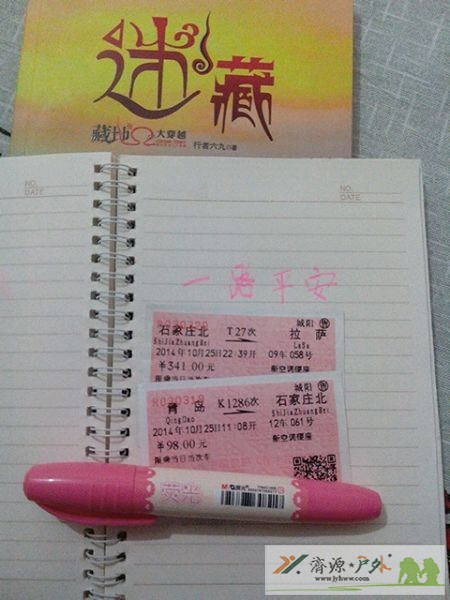 迷藏
藏地
大穿越
行者六九◎著
NO.
DATE
NO.
DATE
一路平安
R030320
城阳 售
石家庄北 T27次 拉萨
ShiJiaZhuangBei LaSa
2014年10月25日22:39开 09车058号
¥341.00元 新空调硬座
限乘当日当次车
R030319
城阳 售
青岛 K1286次 石家庄北
QingDao ShiJiaZhuangBei
2014年10月25日11:08开 12车061号
¥98.00元 新空调硬座
限乘当日当次车
荧光
M&G 晨光
济源★户外
www.jyhww.com